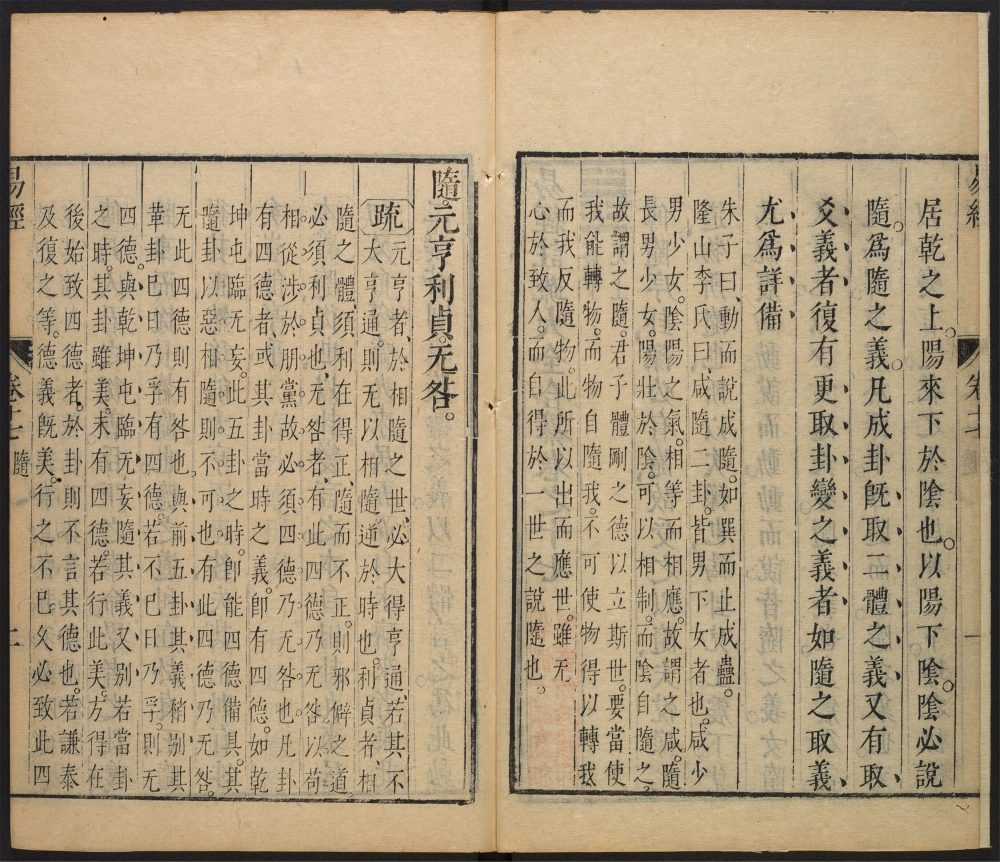 居乾之上。陽來下於陰也。以陽下陰。陰必說
隨。爲隨之義。凡成卦旣取二體之義又有取
爻義者復有更取卦變之義者如隨之取義
尤爲詳備
朱子曰、動而說成隨。如巽而止成蠱。
隆山李氏曰、咸隨二卦。皆男下女者也。咸少
男少女。陰陽之氣。相等而相應。故謂之咸。隨
長男少女。陽壯於陰。可以相制。而陰自隨之。
故謂之隨。君子體剛之德以立斯世。要當使
我能轉物。而物自隨我。不可使物得以轉我
而我反隨物。此所以出而應世。雖无
心於致人。而自得於一世之說隨也。
隨。元亨利貞。无咎。
疏 元亨者、於相隨之世、必大得亨通、若其不
大亨通、則无以相隨逆於時也、利貞者、相
隨之體、須利在得正、隨而不正、則邪僻之道
必須利貞也、无咎者、有此四德乃无咎、以苟
相從涉於朋黨、故必須四德乃无咎也、凡卦
有四德者、或其卦當時之義、卽有四德、如乾
坤屯臨无妄、此五卦之時、卽能四德備具、其
隨卦以惡相隨、則不可也、有此四德乃无咎。
无此四德則有咎也、與前五卦其義稍別、其
革卦巳日乃孚有四德。若不巳日乃孚、則无
四德。與乾坤屯臨无妄隨其義又別、若當卦
之時。其卦雖美、未有四德。若行此美。方得在
後始致四德者。於卦則不言其德也。若謙泰
及復之等。德義旣美。行之不已久必致此四
易經
卷十七 隨
二
易經
卷十七
一